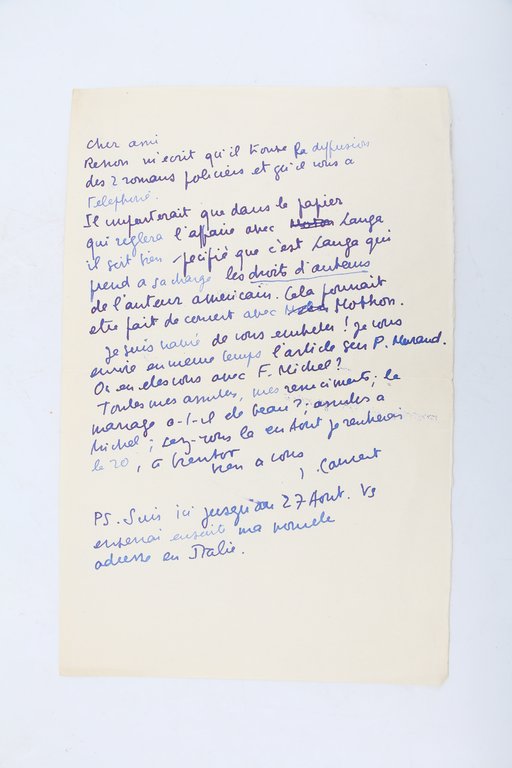 Cher ami
m'écrit qu'il trouve la diffusion
des 2 romans policiers et qu'il vous a
téléphoné.
Il importerait que dans le papier
qui réglera l'affaire avec Langa
il soit bien spécifié que c'est Langa qui
prend a sa charge les droits d'auteurs
de l'auteur américain. Cela pourrait
etre fait de concert avec Mothon.
Je suis navré de vous embeter ! Je vous
envoie en meme temps l'article sur P. Morand.
Où en etes vous avec F. Michel ?
Toutes mes amitiés, mes remerciments ; le
mariage a-t-il été beau ? ; amitiés a
Michel ; serez-vous la en Aout je rentrerais
le 20, à bientot
bien a vous
Laurent
PS. Suis ici jusqu'au 27 Aout. Vs
enverrai ensuite ma nouvelle
adresse en Italie.